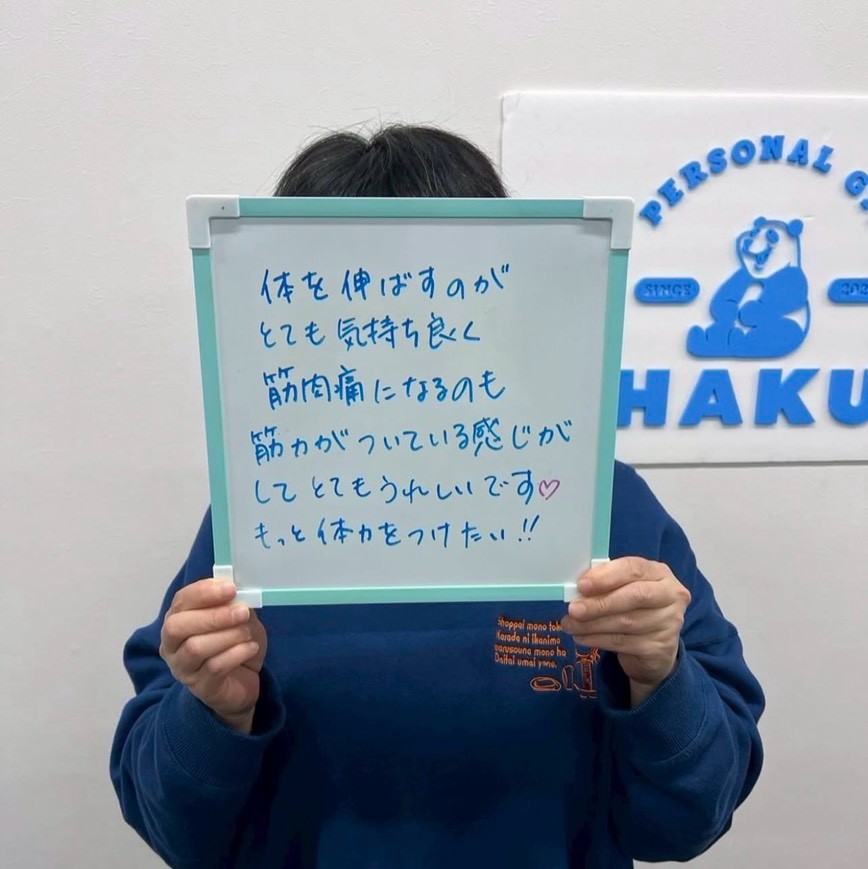 体を伸ばすのが
とても気持ち良く
筋肉痛になるのも
筋力がついている感じが
してとてもうれしいです♡
もっと体力をつけたい!!
PERSONAL G
SINCE 202
HAKU
Shoppai mono tob
Karada ni ikanimo
warusouna mono ha
Daitai umai yone.